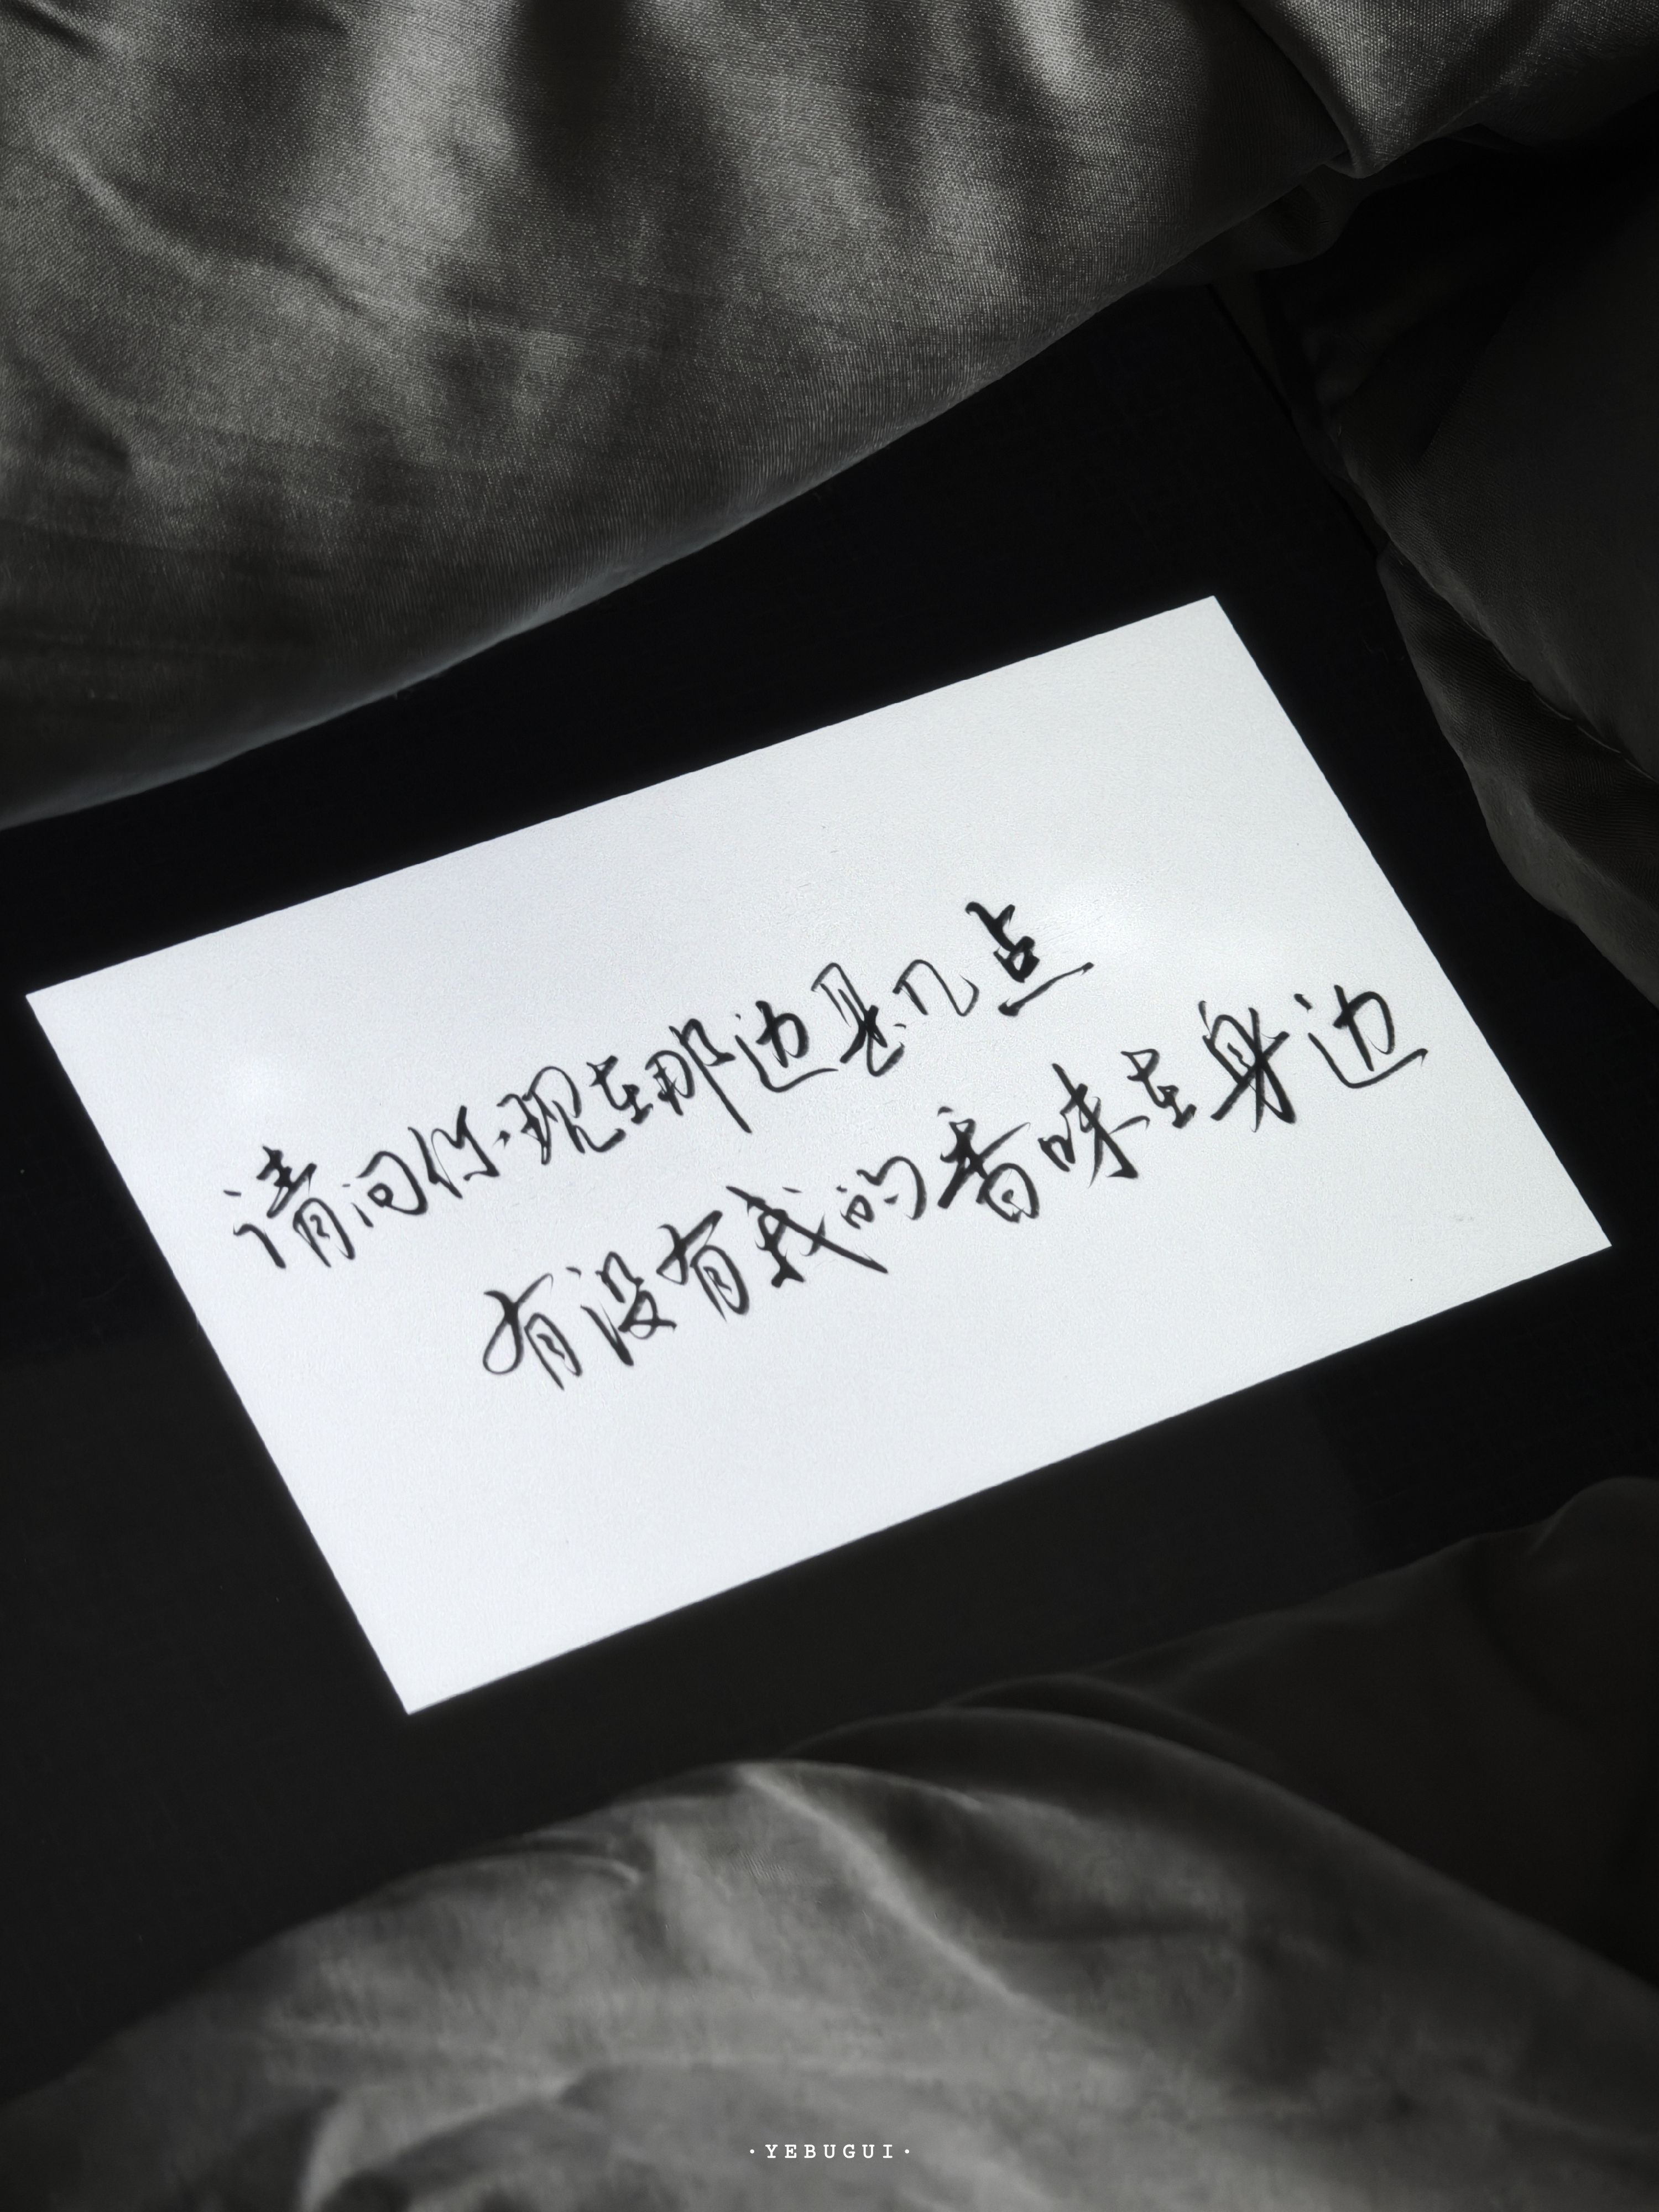 请问你现在那边是几点
有没有我的香味在身边
·YEBUGUI·